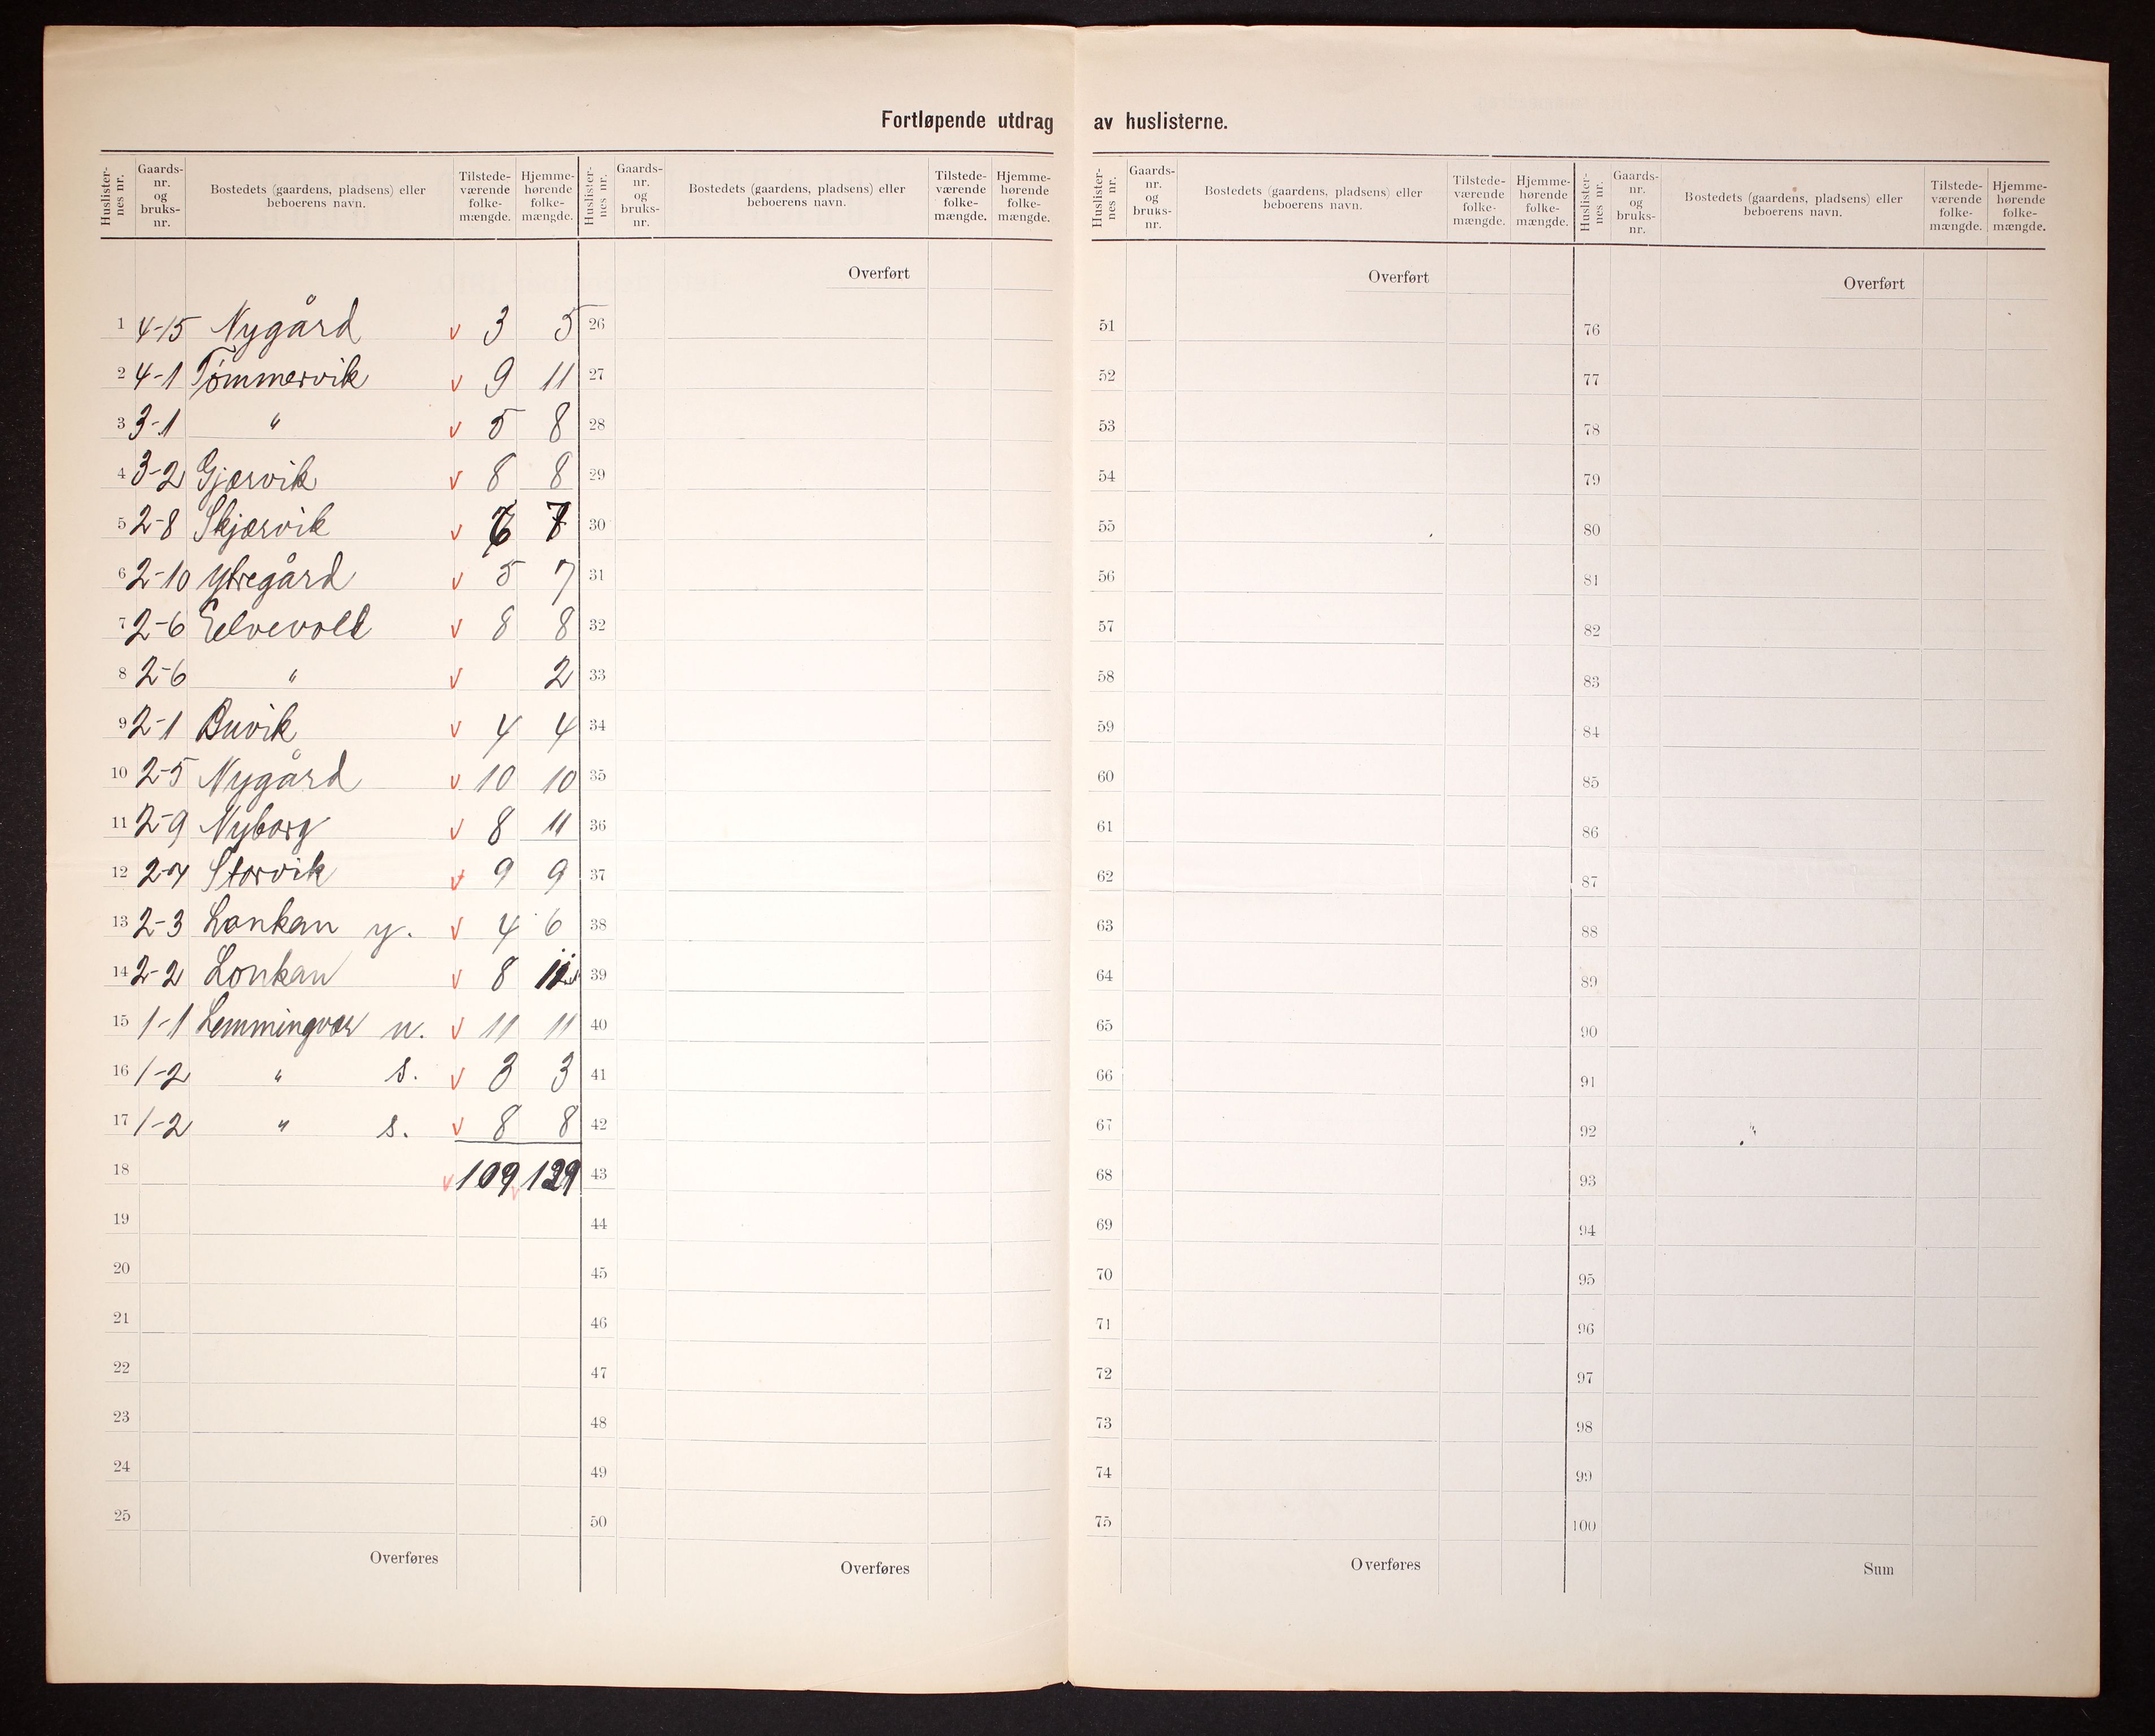 Fortløpende utdrag av huslisterne.
Huslister-nes nr. Gaards-nr. og bruks-nr. Bostedets (gaardens, pladsens) eller beboerens navn. Tilstede-værende folke-mængde. Hjemme-hørende folke-mængde. Huslister-nes nr. Gaards-nr. og bruks-nr. Bostedets (gaardens, pladsens) eller beboerens navn. Tilstede-værende folke-mængde. Hjemme-hørende folke-mængde. Huslister-nes nr. Gaards-nr. og bruks-nr. Bostedets (gaardens, pladsens) eller beboerens navn. Tilstede-værende folke-mængde. Hjemme-hørende folke-mængde. Huslister-nes nr. Gaards-nr. og bruks-nr. Bostedets (gaardens, pladsens) eller beboerens navn. Tilstede-værende folke-mængde. Hjemme-hørende folke-mængde.
Overført Overført Overført
1 4-15 Nygård v 3 5 26 51 76
2 4-1 Tømmervik v 9 11 27 52 77
3 3-1 " v 5 8 28 53 78
4 3-2 Gjærvik v 8 8 29 54 79
5 2-8 Skjærvik v 6 7 30 55 80
6 2-10 Ytregård v 5 7 31 56 81
7 2-6 Eelvevold v 8 8 32 57 82
8 2-6 " v 2 33 58 83
9 2-1 Buvik v 4 4 34 59 84
10 2-5 Nygård v 10 10 35 60 85
11 2-9 Nyborg v 8 11 36 61 86
12 2-7 Storvik v 9 9 37 62 87
13 2-3 Lonkan y. v 4 6 38 63 88
14 2-2 Lonkan v 8 11 39 64 89
15 1-1 Lemmingvær n. v 11 11 40 65 90
16 1-2 " s. v 3 3 41 66 91
17 1-2 " s. v 8 8 42 67 92
18 v 109 v 129 43 68 93
19 44 69 94
20 45 70 95
21 46 71 96
22 47 72 97
23 48 73 98
24 49 74 99
25 50 75 100
Overføres Overføres Overføres Sum